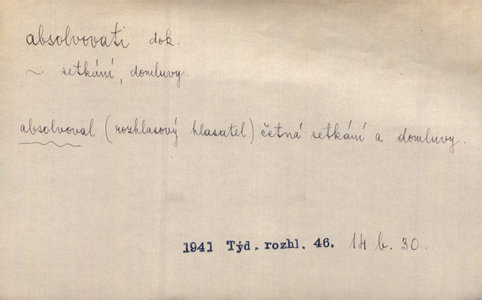 absolvovati dok.
~ setkání, domluvy.
absolvoval (rozhlasový hlasatel) četná setkání a domluvy.
1941 Týd. rozhl. 46. 14 b. 30.